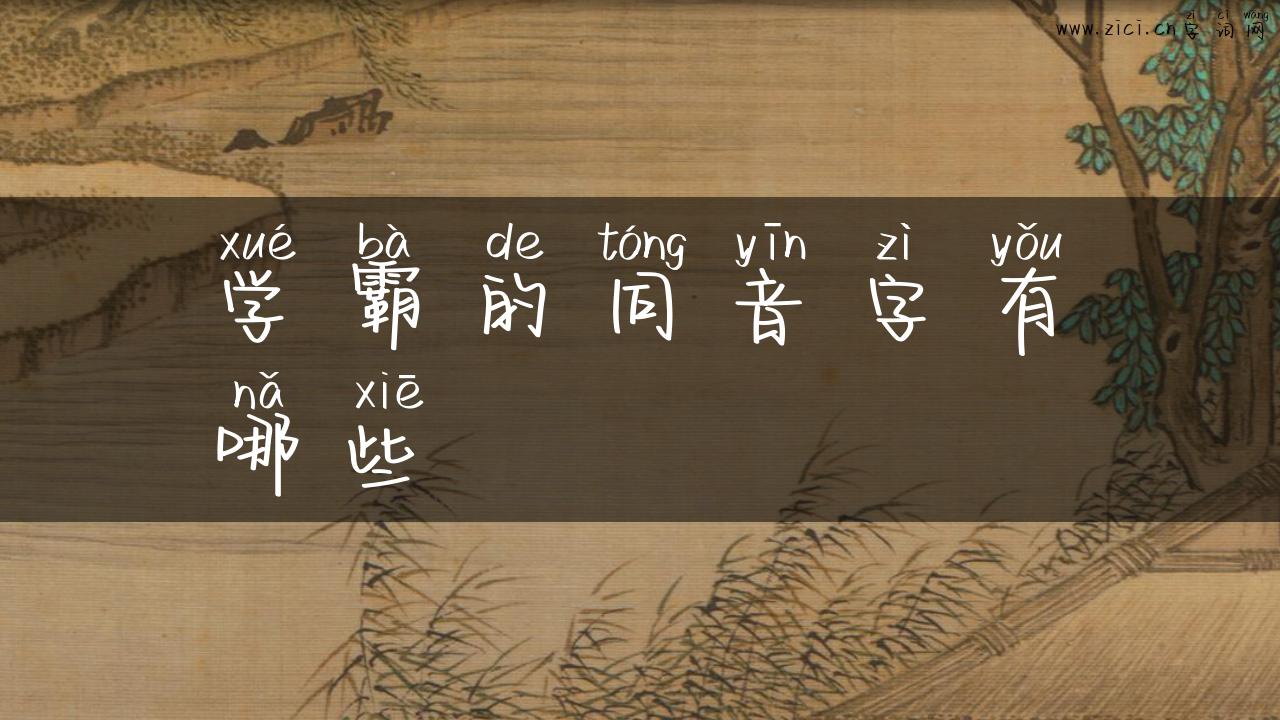 zì cí wǎng
www.zici.cn字词网
xué bà de tóng yīn zì yǒu
学霸的同音字有
nǎ xiē
哪些